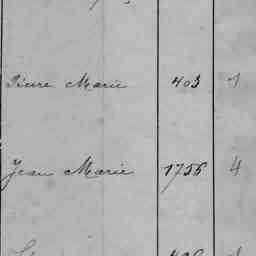 Pierre Marie 403 1
Jean Marie 1756 4